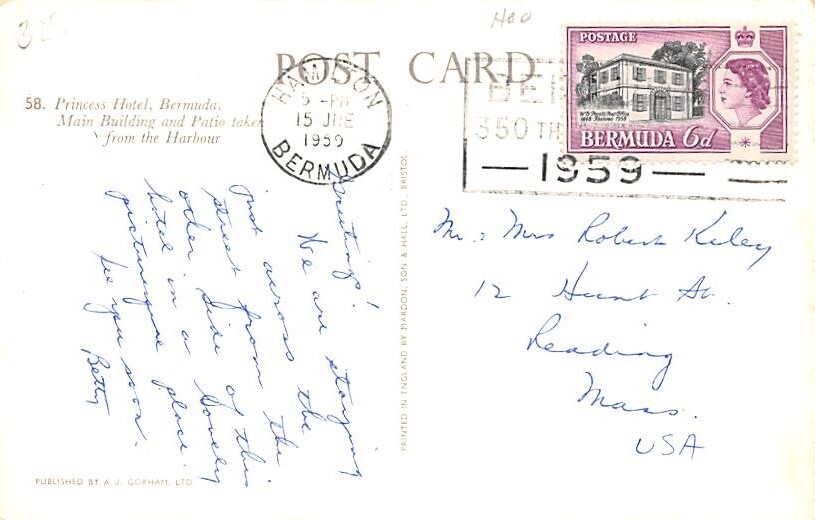 35
Hoo
POST CARD
58. Princess Hotel, Bermuda.
Main Building and Patio taken
from the Harbour
HAMILTON
5 - PM
15 JNE
1959
BERMUDA
BER
350TH
— 1959 —
POSTAGE
W.B. Perot's Post Office
1848 Restored 1959
BERMUDA 6d
Greetings!
We are staying
just across the
street from the
other side of this
hotel in a lovely
picturesque place.
See you soon.
Betty
PRINTED IN ENGLAND BY MARDON, SON & HALL, LTD., BRISTOL
Mr. & Mrs Robert Kiley
12 Hunt St.
Reading
Mass.
USA
PUBLISHED BY A. J. GORHAM, LTD